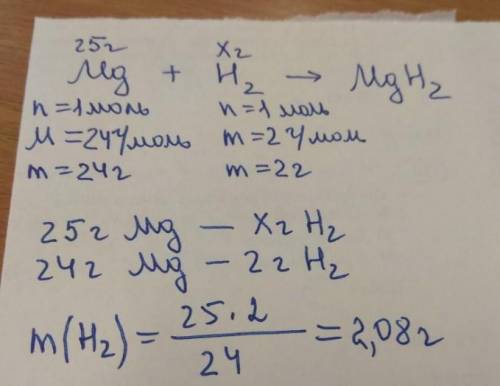 25г x г
Mg + H₂ → MgH₂
n = 1 моль n = 1 моль
M = 24 г/моль m = 2 г/моль
m = 24 г m = 2 г
25 г Mg — x г H₂
24 г Mg — 2 г H₂
m(H₂) = 25 · 2 / 24 = 2,08 г